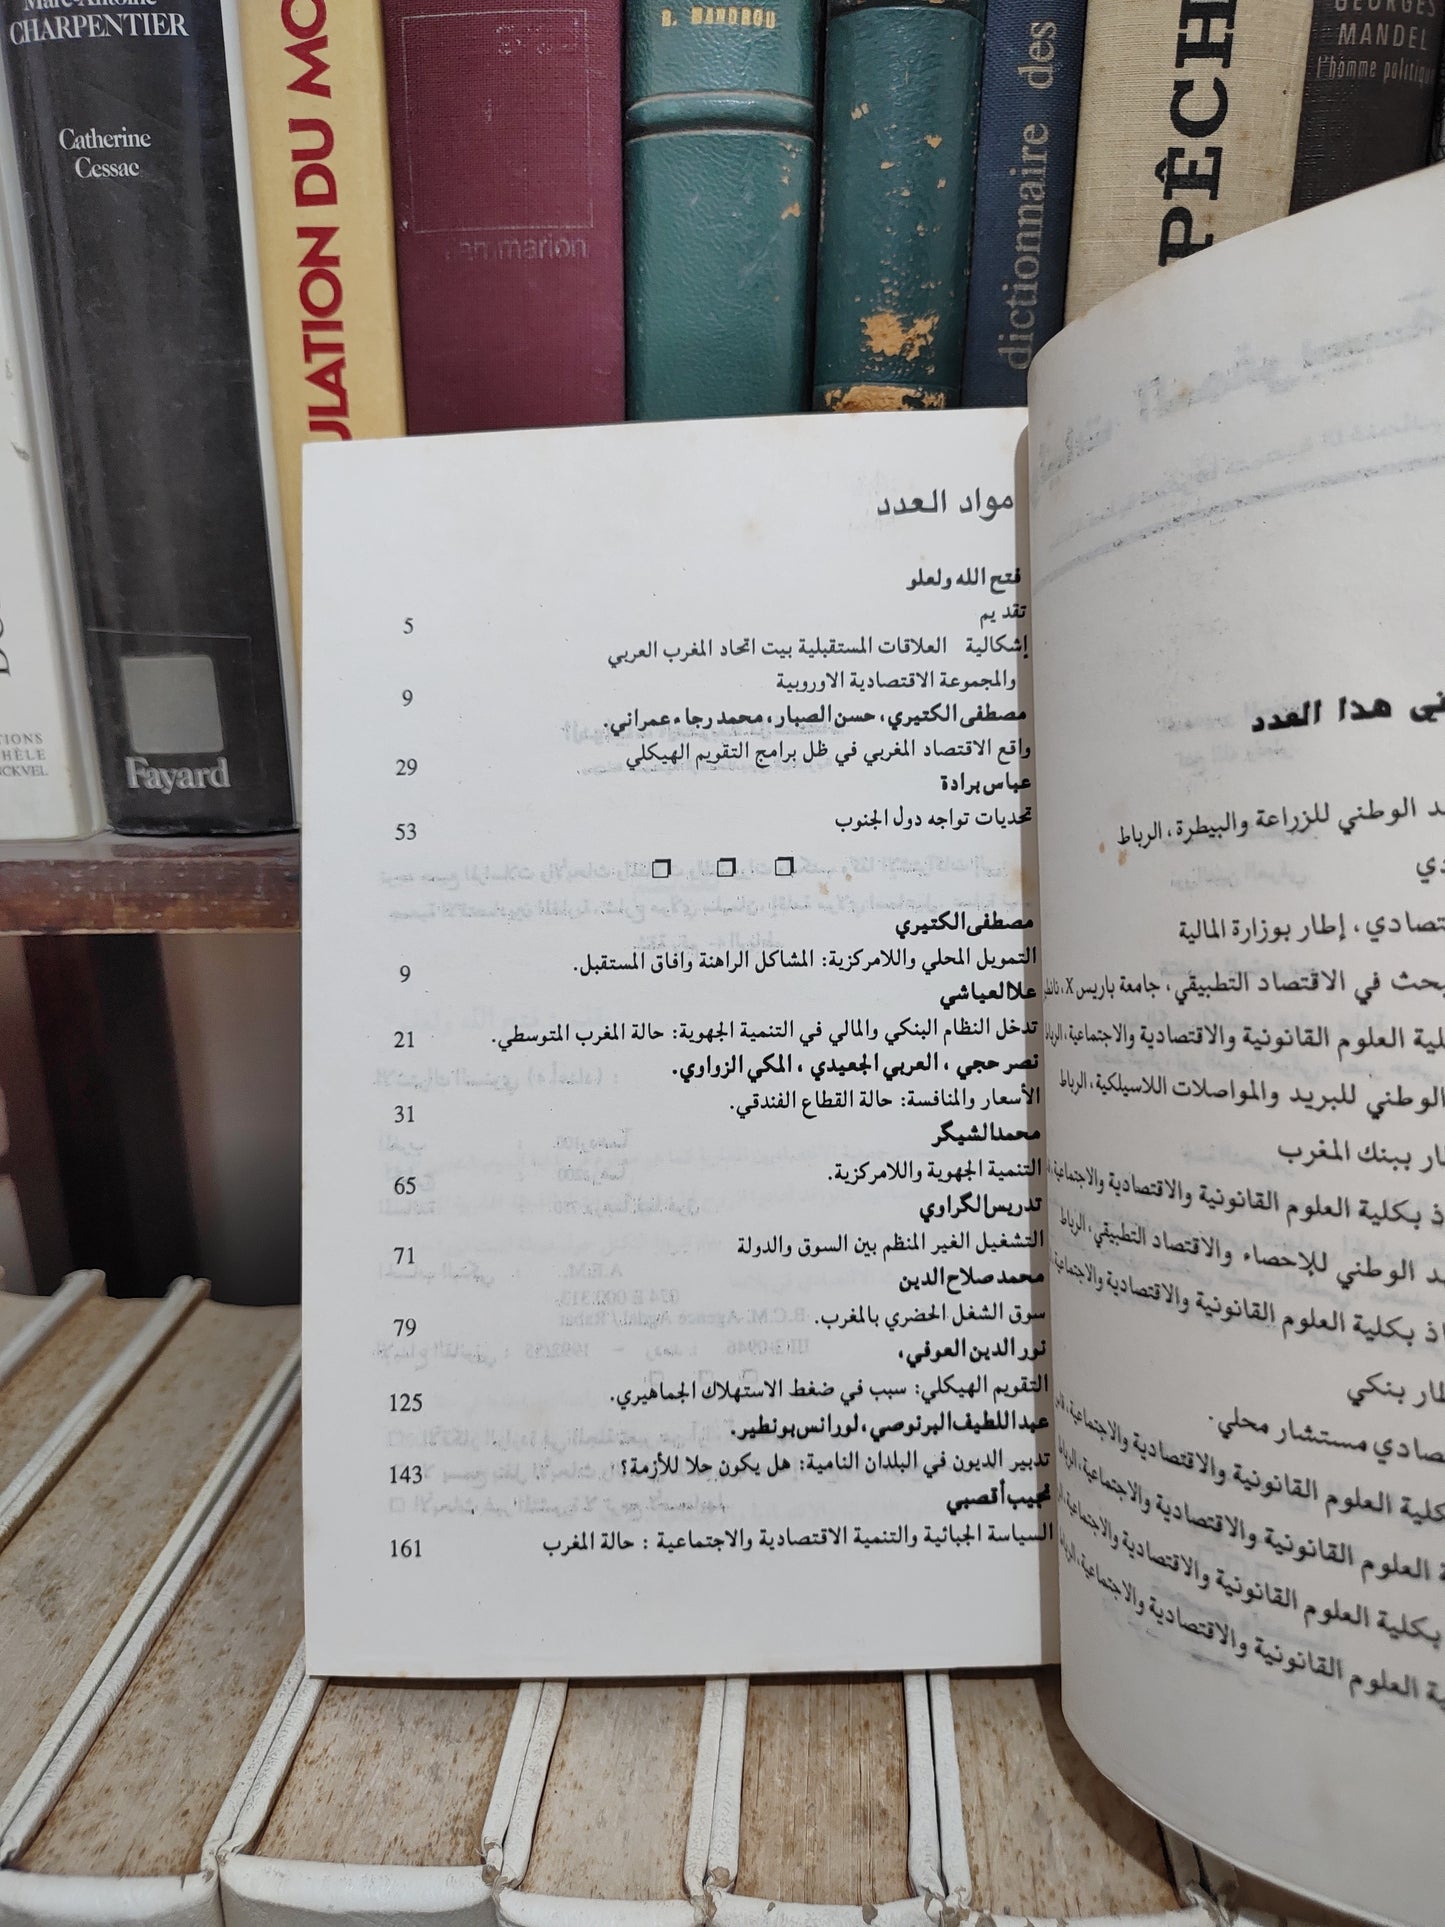 Marc-Antoine
CHARPENTIER
Catherine
Cessac
Fayard
ULATION DU MO
flammarion
R. MANDROU
dictionnaire des
PÊCH
GEORGES
MANDEL
l'homme politique
مواد العدد
فتح الله ولعلو
تقديم 5
إشكالية العلاقات المستقبلية بيت اتحاد المغرب العربي
والمجموعة الاقتصادية الاوروبية 9
مصطفى الكتيري، حسن الصبار، محمد رجاء عمراني.
واقع الاقتصاد المغربي في ظل برامج التقويم الهيكلي 29
عباس برادة
تحديات تواجه دول الجنوب 53
❒ ❒ ❒
مصطفى الكتيري
التمويل المحلي واللامركزية: المشاكل الراهنة وافاق المستقبل. 9
علا العياشي
تدخل النظام البنكي والمالي في التنمية الجهوية: حالة المغرب المتوسطي. 21
نصر حجي ، العربي الجعيدي ، المكي الزواوي.
الأسعار والمنافسة: حالة القطاع الفندقي. 31
محمد الشيگر
التنمية الجهوية واللامركزية. 65
تدريس الگراوي
التشغيل الغير المنظم بين السوق والدولة 71
محمد صلاح الدين
سوق الشغل الحضري بالمغرب. 79
نور الدين العوفي،
التقويم الهيكلي: سبب في ضغط الاستهلاك الجماهيري. 125
عبد اللطيف البرنوصي، لورانس بونطير.
تدبير الديون في البلدان النامية: هل يكون حلا للأزمة؟ 143
نجيب أقصبي
السياسة الجبائية والتنمية الاقتصادية والاجتماعية : حالة المغرب 161
هذا العدد
الوطني للزراعة والبيطرة، الرباط
إطار بوزارة المالية
في الاقتصاد التطبيقي، جامعة باريس X،
العلوم القانونية والاقتصادية والاجتماعية، الرباط
الوطني للبريد والمواصلات اللاسيلكية، الرباط
ببنك المغرب
بكلية العلوم القانونية والاقتصادية والاجتماعية،
الوطني للإحصاء والاقتصاد التطبيقي، الرباط
بكلية العلوم القانونية والاقتصادية والاجتماعية،
بنكي
مستشار محلي.
العلوم القانونية والاقتصادية والاجتماعية،
العلوم القانونية والاقتصادية والاجتماعية، الرباط
بكلية العلوم القانونية والاقتصادية والاجتماعية،
العلوم القانونية والاقتصادية والاجتماعية، الرباط